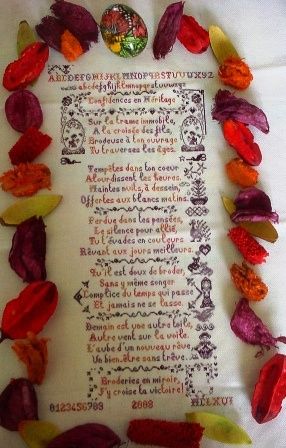 ABCDEFGHIJKLMNOPQRSTUVWXYZ
abcdefghijklmnopqrstuvwxyz
Confidences en Héritage
Sur la trame immobile,
A la croisée des fils,
Brodeuse à ton ouvrage
Tu traverses les âges.
Tempêtes dans ton coeur
Alourdissent les heures.
Maintes nuits, à dessein,
Offertes aux blancs matins.
Perdue dans tes pensées,
Le silence pour allié,
Tu t'évades en couleurs
Rêvant aux jours meilleurs.
Qu'il est doux de broder,
Sans y même songer
Complice du temps qui passe
Et jamais ne se lasse.
Demain est une autre toile,
Autre vent sur la voile.
L'aube d'un nouveau rêve,
Un bien-être sans trêve.
Broderies en miroir,
J'y croise la victoire!
0123456789 2008